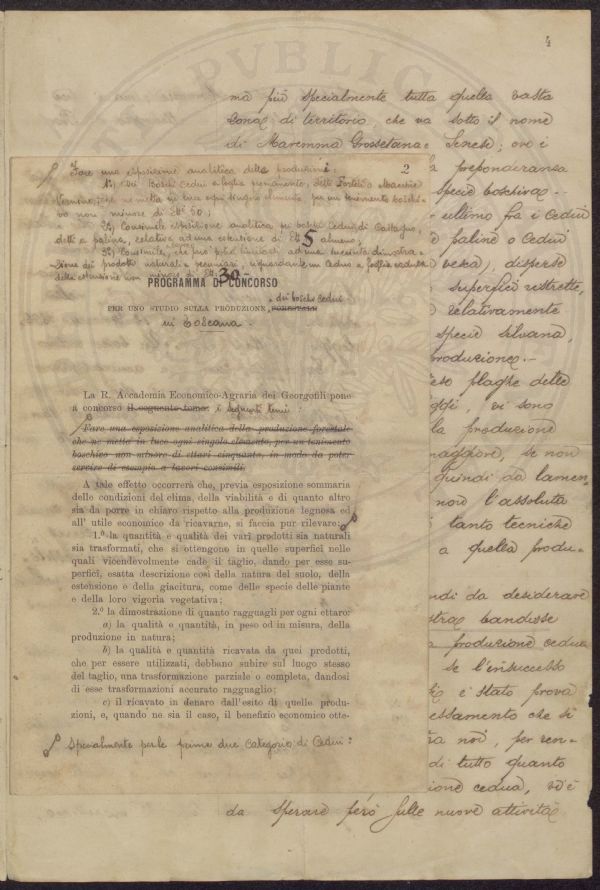 4
ma più specialmente tutta quella vasta
zona di territorio, che va sotto il nome
di Maremma Grossetana e Senese; ove i
preponderanza
specie boschiva
ultimo fra i Cedui
paline o Cedui
vecea), disperse
superfici ristrette,
relativamente
specie silvana,
produzione.-
plaghe delle
vi sono
la produzione
maggiore, se non
quindi da lamen-
noi l'assoluta
tanto tecniche
a quella produ-
ndi da desiderare
bandisse
produzione cedua
se l'insuccesso
è stato prova
che si
noi, per ren-
di tutto quanto
ione cedua, v'è
da sperare però sulle nuove attività
2
Fare una esposizione analitica della produzione:
1°) dei Boschi Cedui a foglia permanente, detti Forteti o Macchie
che ne metta in luce ogni singolo elemento per un tenimento boschi-
vo non minore di Ett. 50;
2°) Consimile esposizione analitica pei boschi Cedui di Castagno,
detti a palina, relativa ad una estensione di Ett. 5 almeno;
3°) Consimile, che può limitarsi ad una succinta dimostra-
zione dei prodotti naturali e pecuniari riguardante un Ceduo a foglia caduca
della estensione non minore di Ett. 30-
PROGRAMMA DI CONCORSO
PER UNO STUDIO SULLA PRODUZIONE FORESTALE dei boschi Cedui
in Toscana.
La R. Accademia Economico-Agraria dei Georgofili pone
a concorso il seguente tema: i seguenti temi:
Fare una esposizione analitica della produzione forestale
che ne metta in luce ogni singolo elemento, per un tenimento
boschivo non minore di ettari cinquanta, in modo da poter
servire di esempio a lavori consimili.
A tale effetto occorrerà che, previa esposizione sommaria
delle condizioni del clima, della viabilità e di quanto altro
sia da porre in chiaro rispetto alla produzione legnosa ed
all' utile economico da ricavarne, si faccia pur rilevare:
1.° la quantità e qualità dei varî prodotti sia naturali
sia trasformati, che si ottengono in quelle superfici nelle
quali vicendevolmente cade il taglio, dando per esse su-
perfici, esatta descrizione così della natura del suolo, della
estensione e della giacitura, come delle specie delle piante
e della loro vigoria vegetativa;
2.° la dimostrazione di quanto ragguagli per ogni ettaro:
a) la qualità e quantità, in peso od in misura, della
produzione in natura;
b) la qualità e quantità ricavata da quei prodotti,
che per essere utilizzati, debbano subire sul luogo stesso
del taglio, una trasformazione parziale o completa, dandosi
di esse trasformazioni accurato ragguaglio;
c) il ricavato in denaro dall'esito di quelle produ-
zioni, e, quando ne sia il caso, il benefizio economico otte-
Specialmente per le prime due categorie di Cedui:
PVBLIC